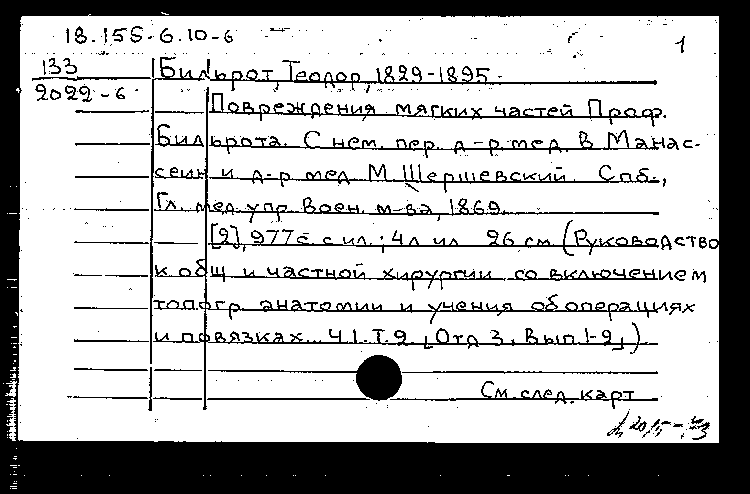 18.155-6.10-6
1
133
2022-6
Бильрот, Теодор, 1829-1895
Повреждения мягких частей Проф.
Бильрота. С нем. пер. д-р мед. В Манас-
сеин и д-р мед М. Шершевский. Спб.,
Гл. мед упр Воен. м-ва, 1869.
[2], 977 с. с ил.; 4 л ил 26 см (Руководство
к общ и частной хирургии со включением
топогр анатомии и учения об операциях
и повязках... Ч 1. Т. 2 [Отд 3, Вып 1-2])
См. след. карт